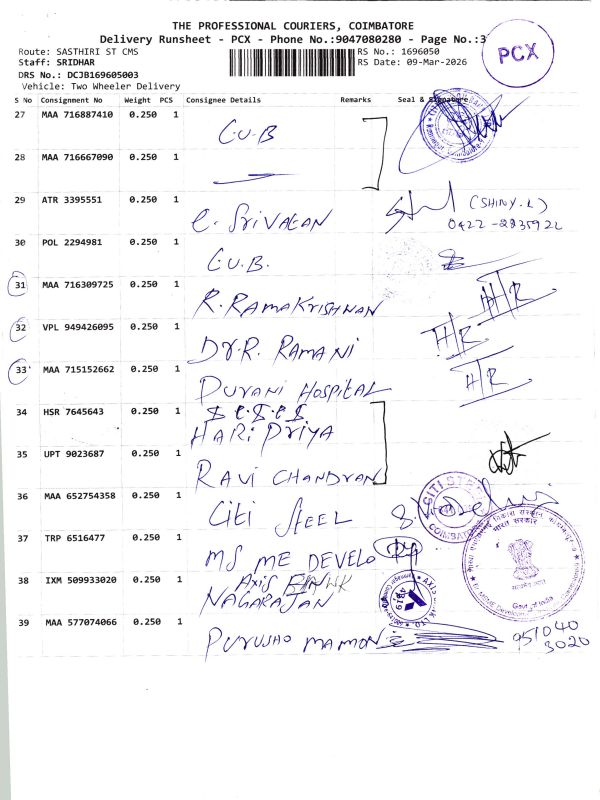 THE PROFESSIONAL COURIERS, COIMBATORE
Delivery Runsheet - PCX - Phone No.:9047080280 - Page No.:3
PCX
Route: SASTHIRI ST CMS
RS No.: 1696050
Staff: SRIDHAR
RS Date: 09-Mar-2026
DRS No.: DCJB169605003
Vehicle: Two Wheeler Delivery
S No Consignment No Weight PCS Consignee Details Remarks Seal & Signature
27 MAA 716887410 0.250 1 C.U.B
28 MAA 716667090 0.250 1
29 ATR 3395551 0.250 1 C. Srivatan (SHINY.L)
0422-2235922
30 POL 2294981 0.250 1 C.U.B.
31 MAA 716309725 0.250 1 R. RamaKrishnan
32 VPL 949426095 0.250 1 Dr.R. RAMANI H/R
33 MAA 715152662 0.250 1 PURANI HOSPITAL H/R
34 HSR 7645643 0.250 1 HARI PRIYA
35 UPT 9023687 0.250 1 RAVI CHANDRAN
36 MAA 652754358 0.250 1 Citi STEEL
37 TRP 6516477 0.250 1 MS ME DEVELO
38 IXM 509933020 0.250 1 Axis BANK
NAGARAJAN
39 MAA 577074066 0.250 1 PURUSHO MAMON
951040
3020
CITI STEEL
COIMBATORE
भारत सरकार
Govt. of India
AXIS
4819